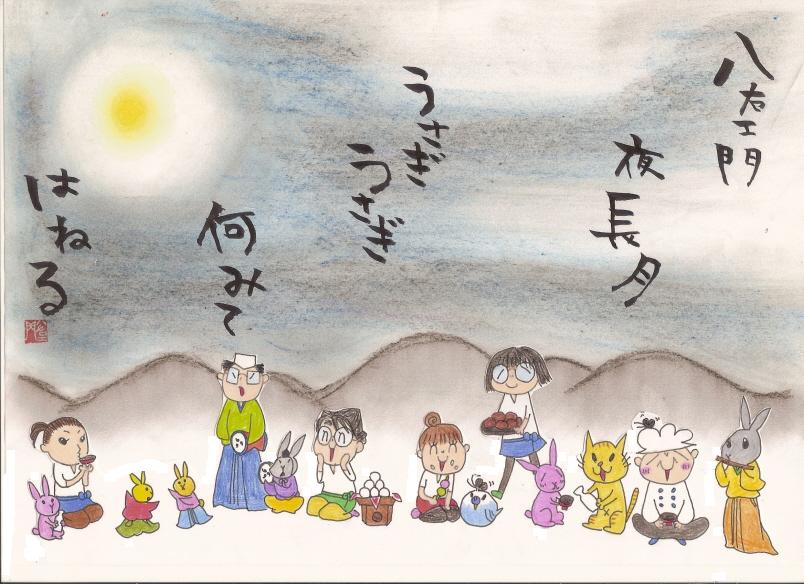 八右エ門
夜長月
うさぎ
うさぎ
何みて
はねる